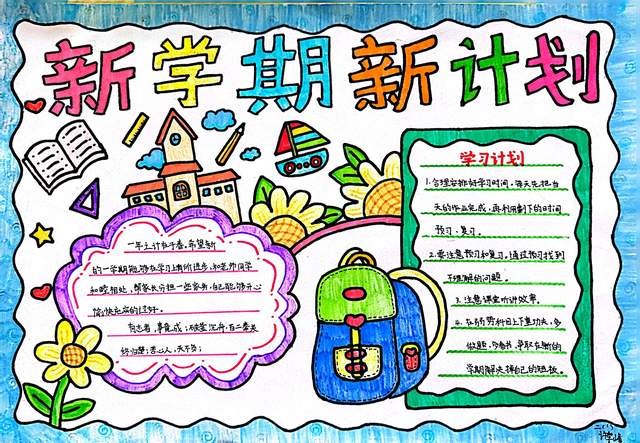 新学期新计划
一年之计在于春，希望新
的一学期能够在学习上有所进步，和老师同学
和睦相处，帮家长分担一些家务，自己能够开心
愉快
有志者，事竟成；破釜沉舟，百二秦关
终归楚；苦心人，天不负；
学习计划
1.合理安排好学习时间，每天先把当
天的作业完成，再利用剩下的时间
预习、复习。
2.要注意预习和复习，通过预习找到
不理解的问题。
3.注意课堂听讲效率。
4.在弱势科目上下重功夫，多
做题，多看书，争取在新的
学期解决掉自己的短板。